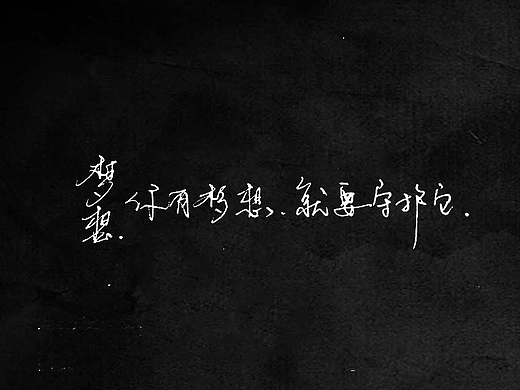 梦想.
你有梦想、就要守护它.